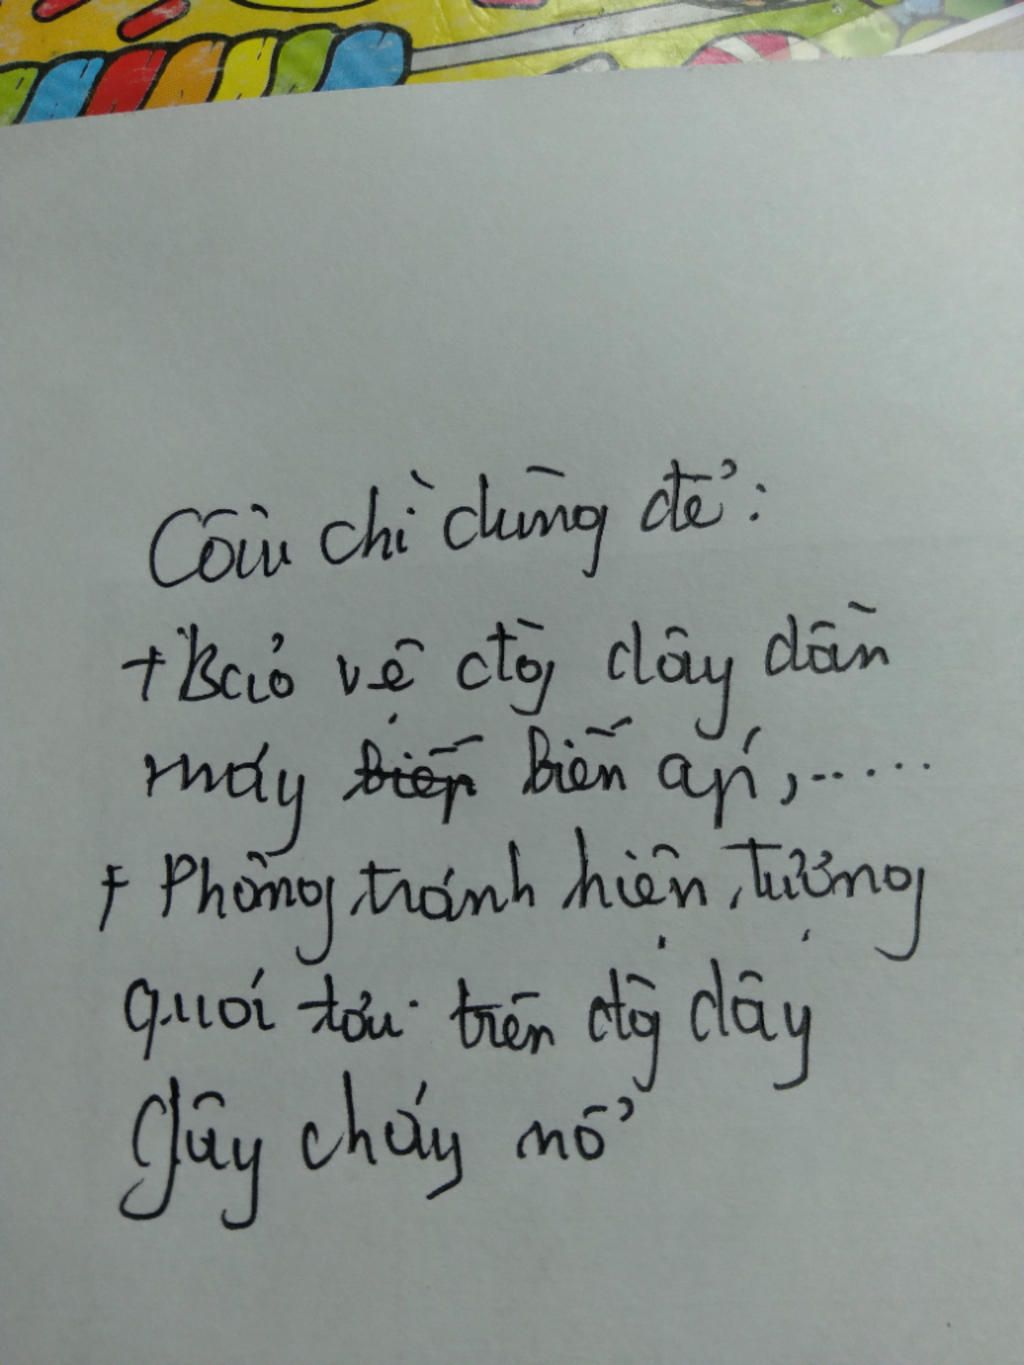 Cầu chì dùng để:
+ Bảo vệ đg dây dẫn
máy biến áp,......
+ Phòng tránh hiện tượng
quá tải trên đg dây
gây cháy nổ